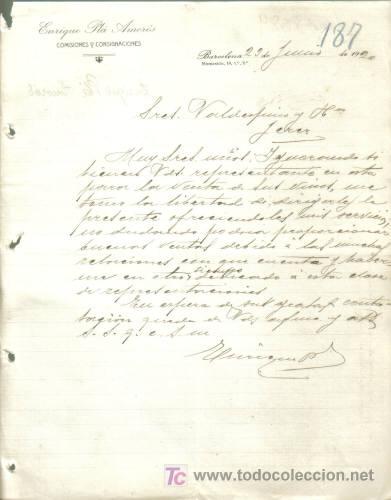 187
Enrique Plá Amorós
COMISIONES Y CONSIGNACIONES
Barcelona 23 de Junio de 19
Sres. Valdespino y Hno
Jerez
Muy Sres. míos: Ignorando si
tienen Vds. representante en esta
para la venta de sus vinos, me
tomo la libertad de dirigirles la
presente ofreciendoles mis servicios
no dudando podria proporcionar
buenas ventas debido á las muchas
relaciones con que cuento y haber
me en otro tiempo dedicado á esta clase
de representaciones
En espera de sus gratas contes
tación queda de Vds. afmo y
s. s. q. e. s. m
Enrique P
TC www.todocoleccion.net